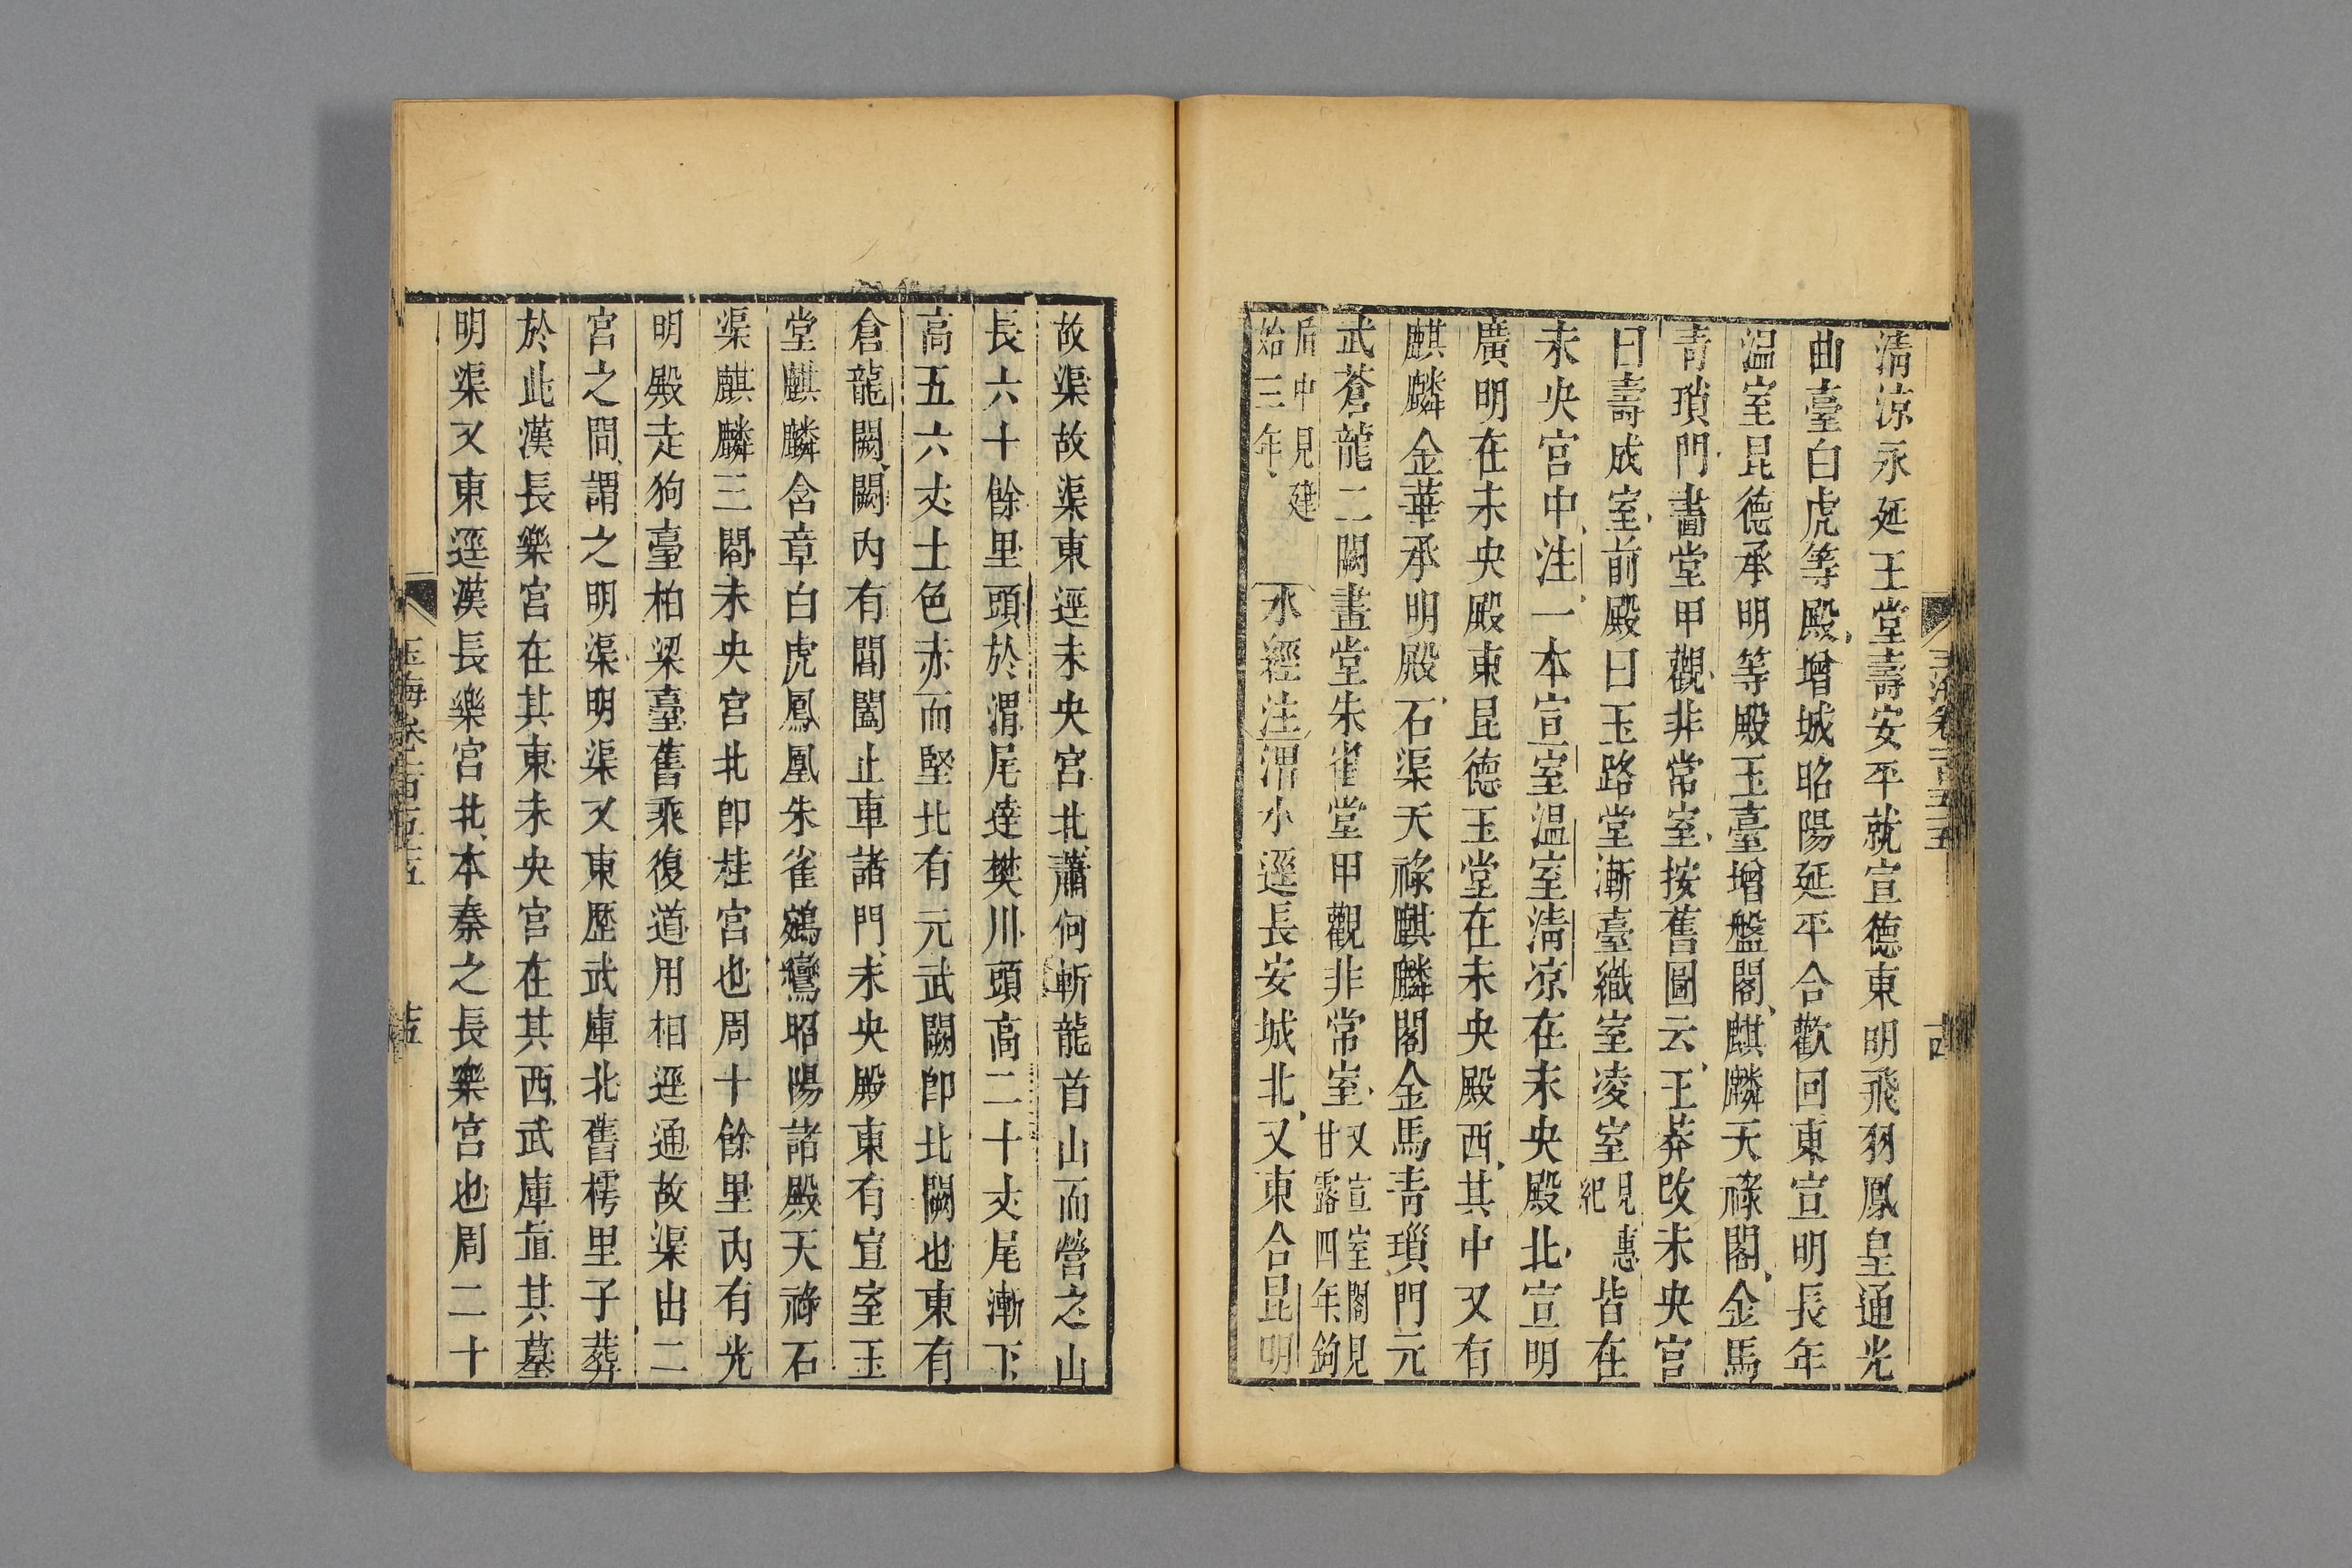 玉海卷一百五十五
十四
清涼永延王堂壽安平就宣德東明飛羽鳳皇通光
曲臺白虎等殿增城昭陽延平合歡回東宣明長年
温室昆德承明等殿玉臺增盤閣麒麟天祿閣金馬
青瑣門畫堂甲觀非常室按舊圖云王莽改未央宫
曰壽成室前殿曰玉路堂漸臺織室凌室見惠紀皆在
未央宫中注一本宣室温室清凉在未央殿北宣明
廣明在未央殿東昆德玉堂在未央殿西其中又有
麒麟金華承明殿石渠天祿麒麟閣金馬青瑣門元
武蒼龍二闕畫堂朱雀堂甲觀非常室又宣室閣見甘露四年鉤
盾中見建始三年水經注渭水逕長安城北又東合昆明
故渠故渠東逕未央宫北蕭何斬龍首山而營之山
長六十餘里頭於渭尾達樊川頭高二十丈尾漸下
高五六丈土色赤而堅北有元武闕即北闕也東有
倉龍闕闕内有閶闔止車諸門未央殿東有宣室玉
堂麒麟含章白虎鳳凰朱雀鵷鸞昭陽諸殿天祿石
渠麒麟三閣未央宫北即桂宫也周十餘里内有光
明殿走狗臺柏梁臺舊乘復道用相逕通故渠出二
宫之間謂之明渠明渠又東歷武庫北舊樗里子葬
於此漢長樂宫在其東未央宫在其西武庫直其墓
明渠又東逕漢長樂宫北本秦之長樂宫也周二十
玉海卷一百五十五
十五